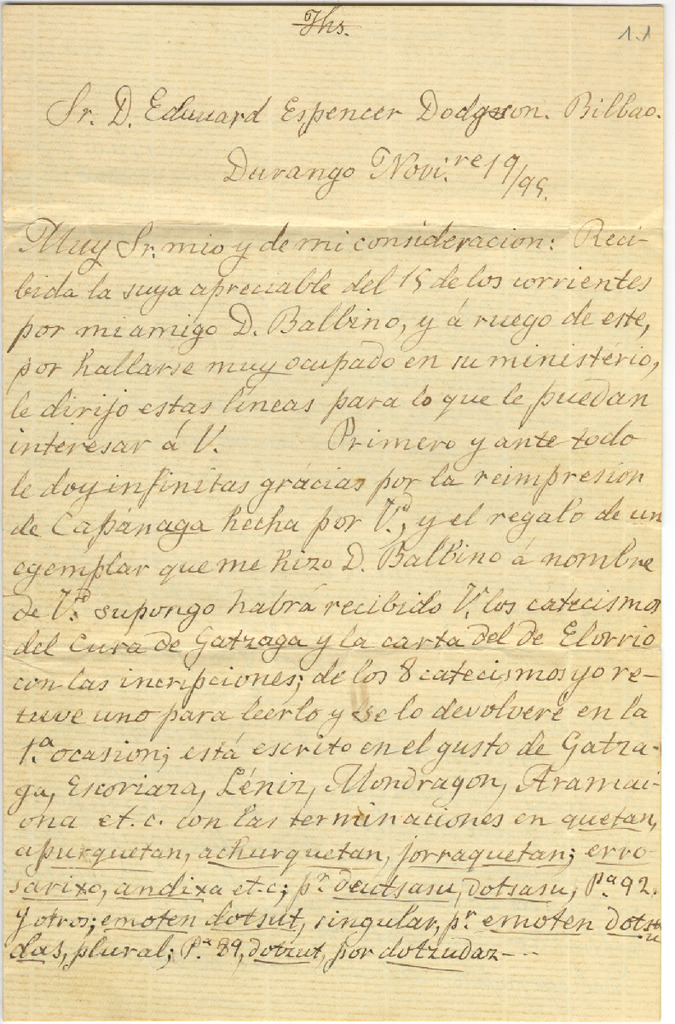 Jhs.
1.1
Sr. D. Eduuard Espencer Dodgson. Bilbao.
Durango Novi.re 19/95.
Muy Sr. mio y de mi consideracion: Reci-
bida la suya apreciable del 15 de los corrientes
por mi amigo D. Balbino, y á ruego de este,
por hallarse muy ocupado en su ministério,
le dirijo estas líneas para lo que le puedan
interesar á V. Primero y ante todo
le doy infinitas grácias por la reimpresión
de Capánaga hecha por V.d, y el regalo de un
egemplar que me hizo D. Balbino á nombre
de V.d supongo habrá recibido V. los catecismos
del Cura de Gatzaga y la carta del de Elorrio
con las incripciones; de los 8 catecismos yo re-
tuve uno para leérlo y se lo devolveré en la
1.ª ocasion; está escrito en el gusto de Gatza-
ga, Escoriaza, Léniz, Mondragon, Aramai-
ona et.c. con las terminaciones en quetan,
apurquetan, achurquetan, jorraquetan; erro-
sarixo, andixa et.c; p.r deutsasu, dotsasu, P.ª 92.
y otros; emoten dotsut, singular, p.r emoten dotsu
das, plural; P.ª 89, dotzut, por dotzudaz---